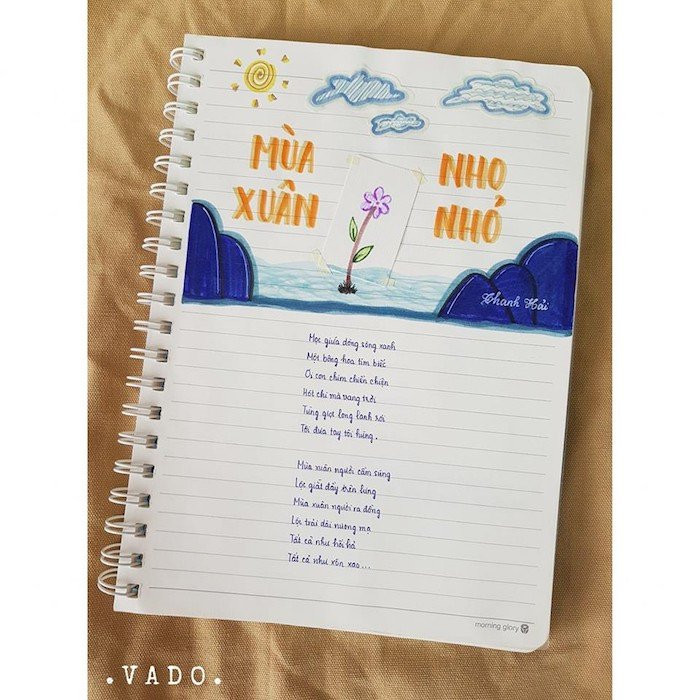 MÙA XUÂN
NHO NHỎ
Thanh Hải
Mọc giữa dòng sông xanh
Một bông hoa tím biếc
Ơi con chim chiền chiện
Hót chi mà vang trời
Từng giọt long lanh rơi
Tôi đưa tay tôi hứng.
Mùa xuân người cầm súng
Lộc giắt đầy trên lưng
Mùa xuân người ra đồng
Lộc trải dài nương mạ
Tất cả như hối hả
Tất cả như xôn xao...
morning glory
.VADO.